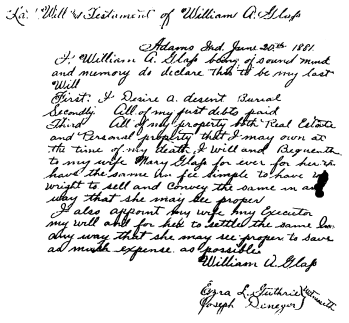 Last Will & Testament of William A. Glass
Adams Ind. June 20th 1881.
I, William A. Glass being of sound mind
and memory do declare this to be my last
Will
First: I Desire a desent Burial
Secondly: All of my just debts paid
Third All of my property both Real Estate
and Personal property that I may own at
the time of my death, I will and Bequeath
to my wife Mary Glass for ever for her to
have the same in fee simple to have
wright to sell and Convey the same in any
way that she may see proper
I also appoint my wife my Executor
my will and for her to settle the same in
any way that she may see proper to save
as much expense as possible
William A. Glass
Ezra L. Guthrie
Joseph Dineger